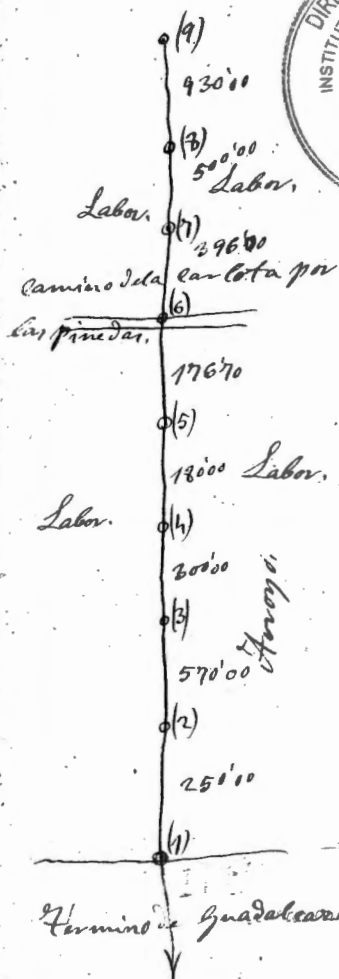 (9)
DIRE
INSTITU
930'00
(8)
500'00
Labor.
Labor.
(7)
396'00
camino de la carlota por
(6)
las pinedas.
176'70
(5)
180'00 Labor.
Labor.
(4)
300'00
Arroyo.
(3)
570'00
(2)
250'00
(1)
Término de Guadalcazar